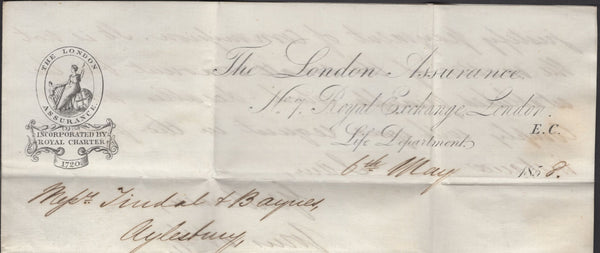 THE LONDON
ASSURANCE
INCORPORATED BY
ROYAL CHARTER
1720
The London Assurance.
No. 7, Royal Exchange, London.
E.C.
Life Department.
6th May 1858.
Messrs. Tindal & Baynes,
Aylesbury,